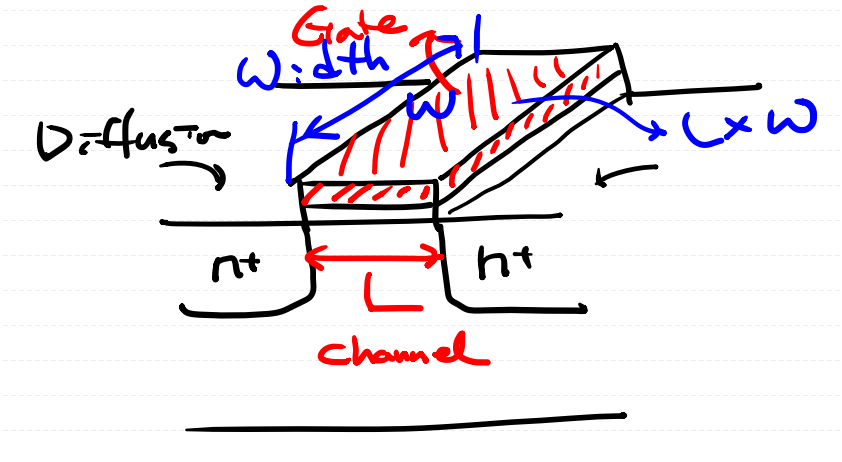 Gate
Width
W
L x W
Diffusion
n+
n+
L
channel